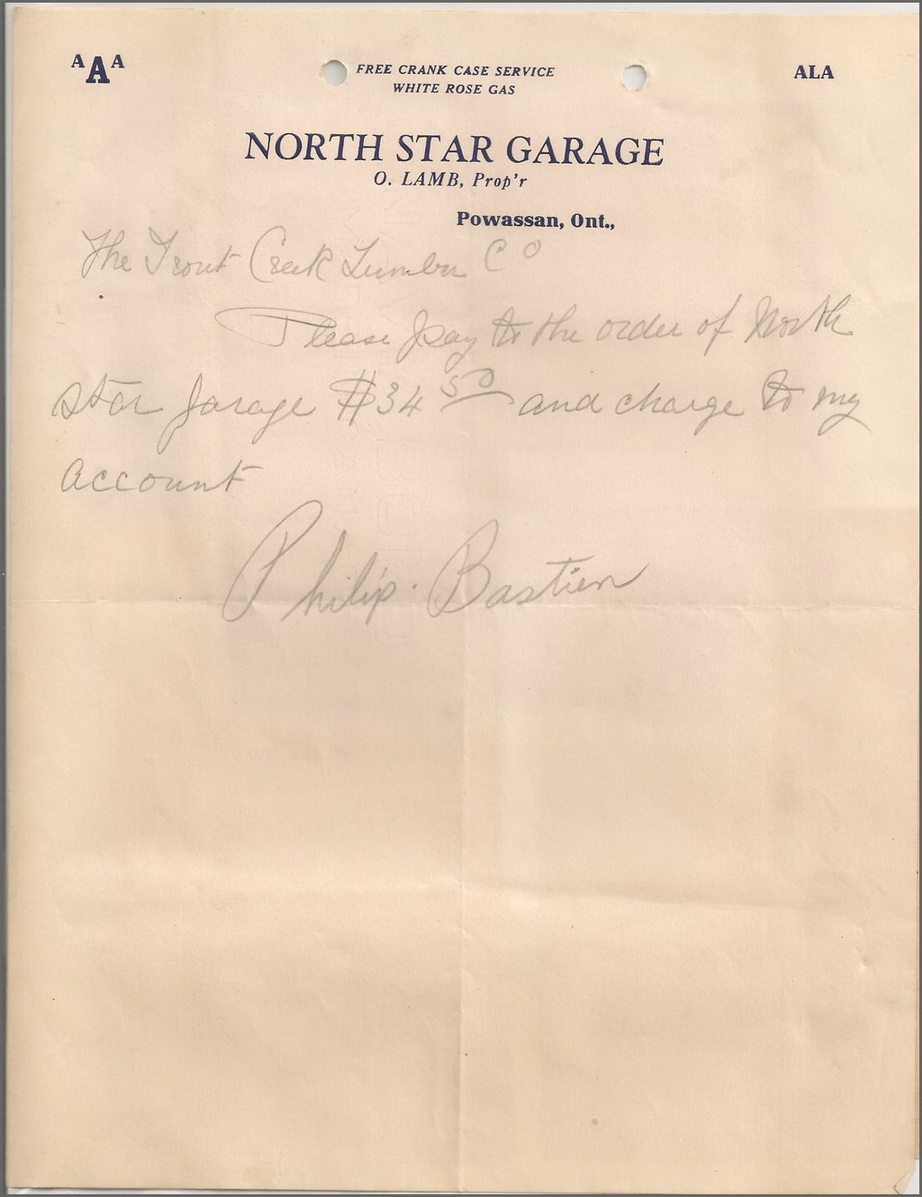 AAA
FREE CRANK CASE SERVICE
ALA
WHITE ROSE GAS
NORTH STAR GARAGE
O. LAMB, Prop'r
Powassan, Ont.,
The Trout Creek Lumber CO
Please pay to the order of North
Star garage $34 50 and charge to my
account
Philip. Bastien